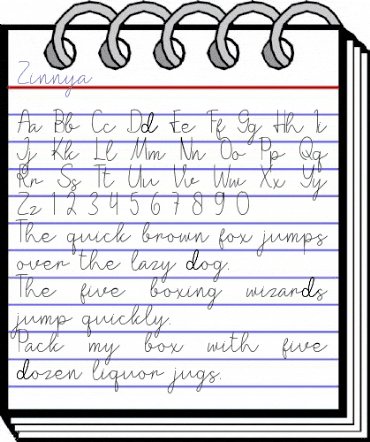 Zinnya
Aa Bb Cc Dd Ee Ff Gg Hh I
Jj Kk Ll Mm Nn Oo Pp Qq
Rr Ss Tt Uu Vv Ww Xx Yy
Zz 1 2 3 4 5 6 7 8 9 0
The quick brown fox jumps
over the lazy dog.
The five boxing wizards
jump quickly.
Pack my box with five
dozen liquor jugs.